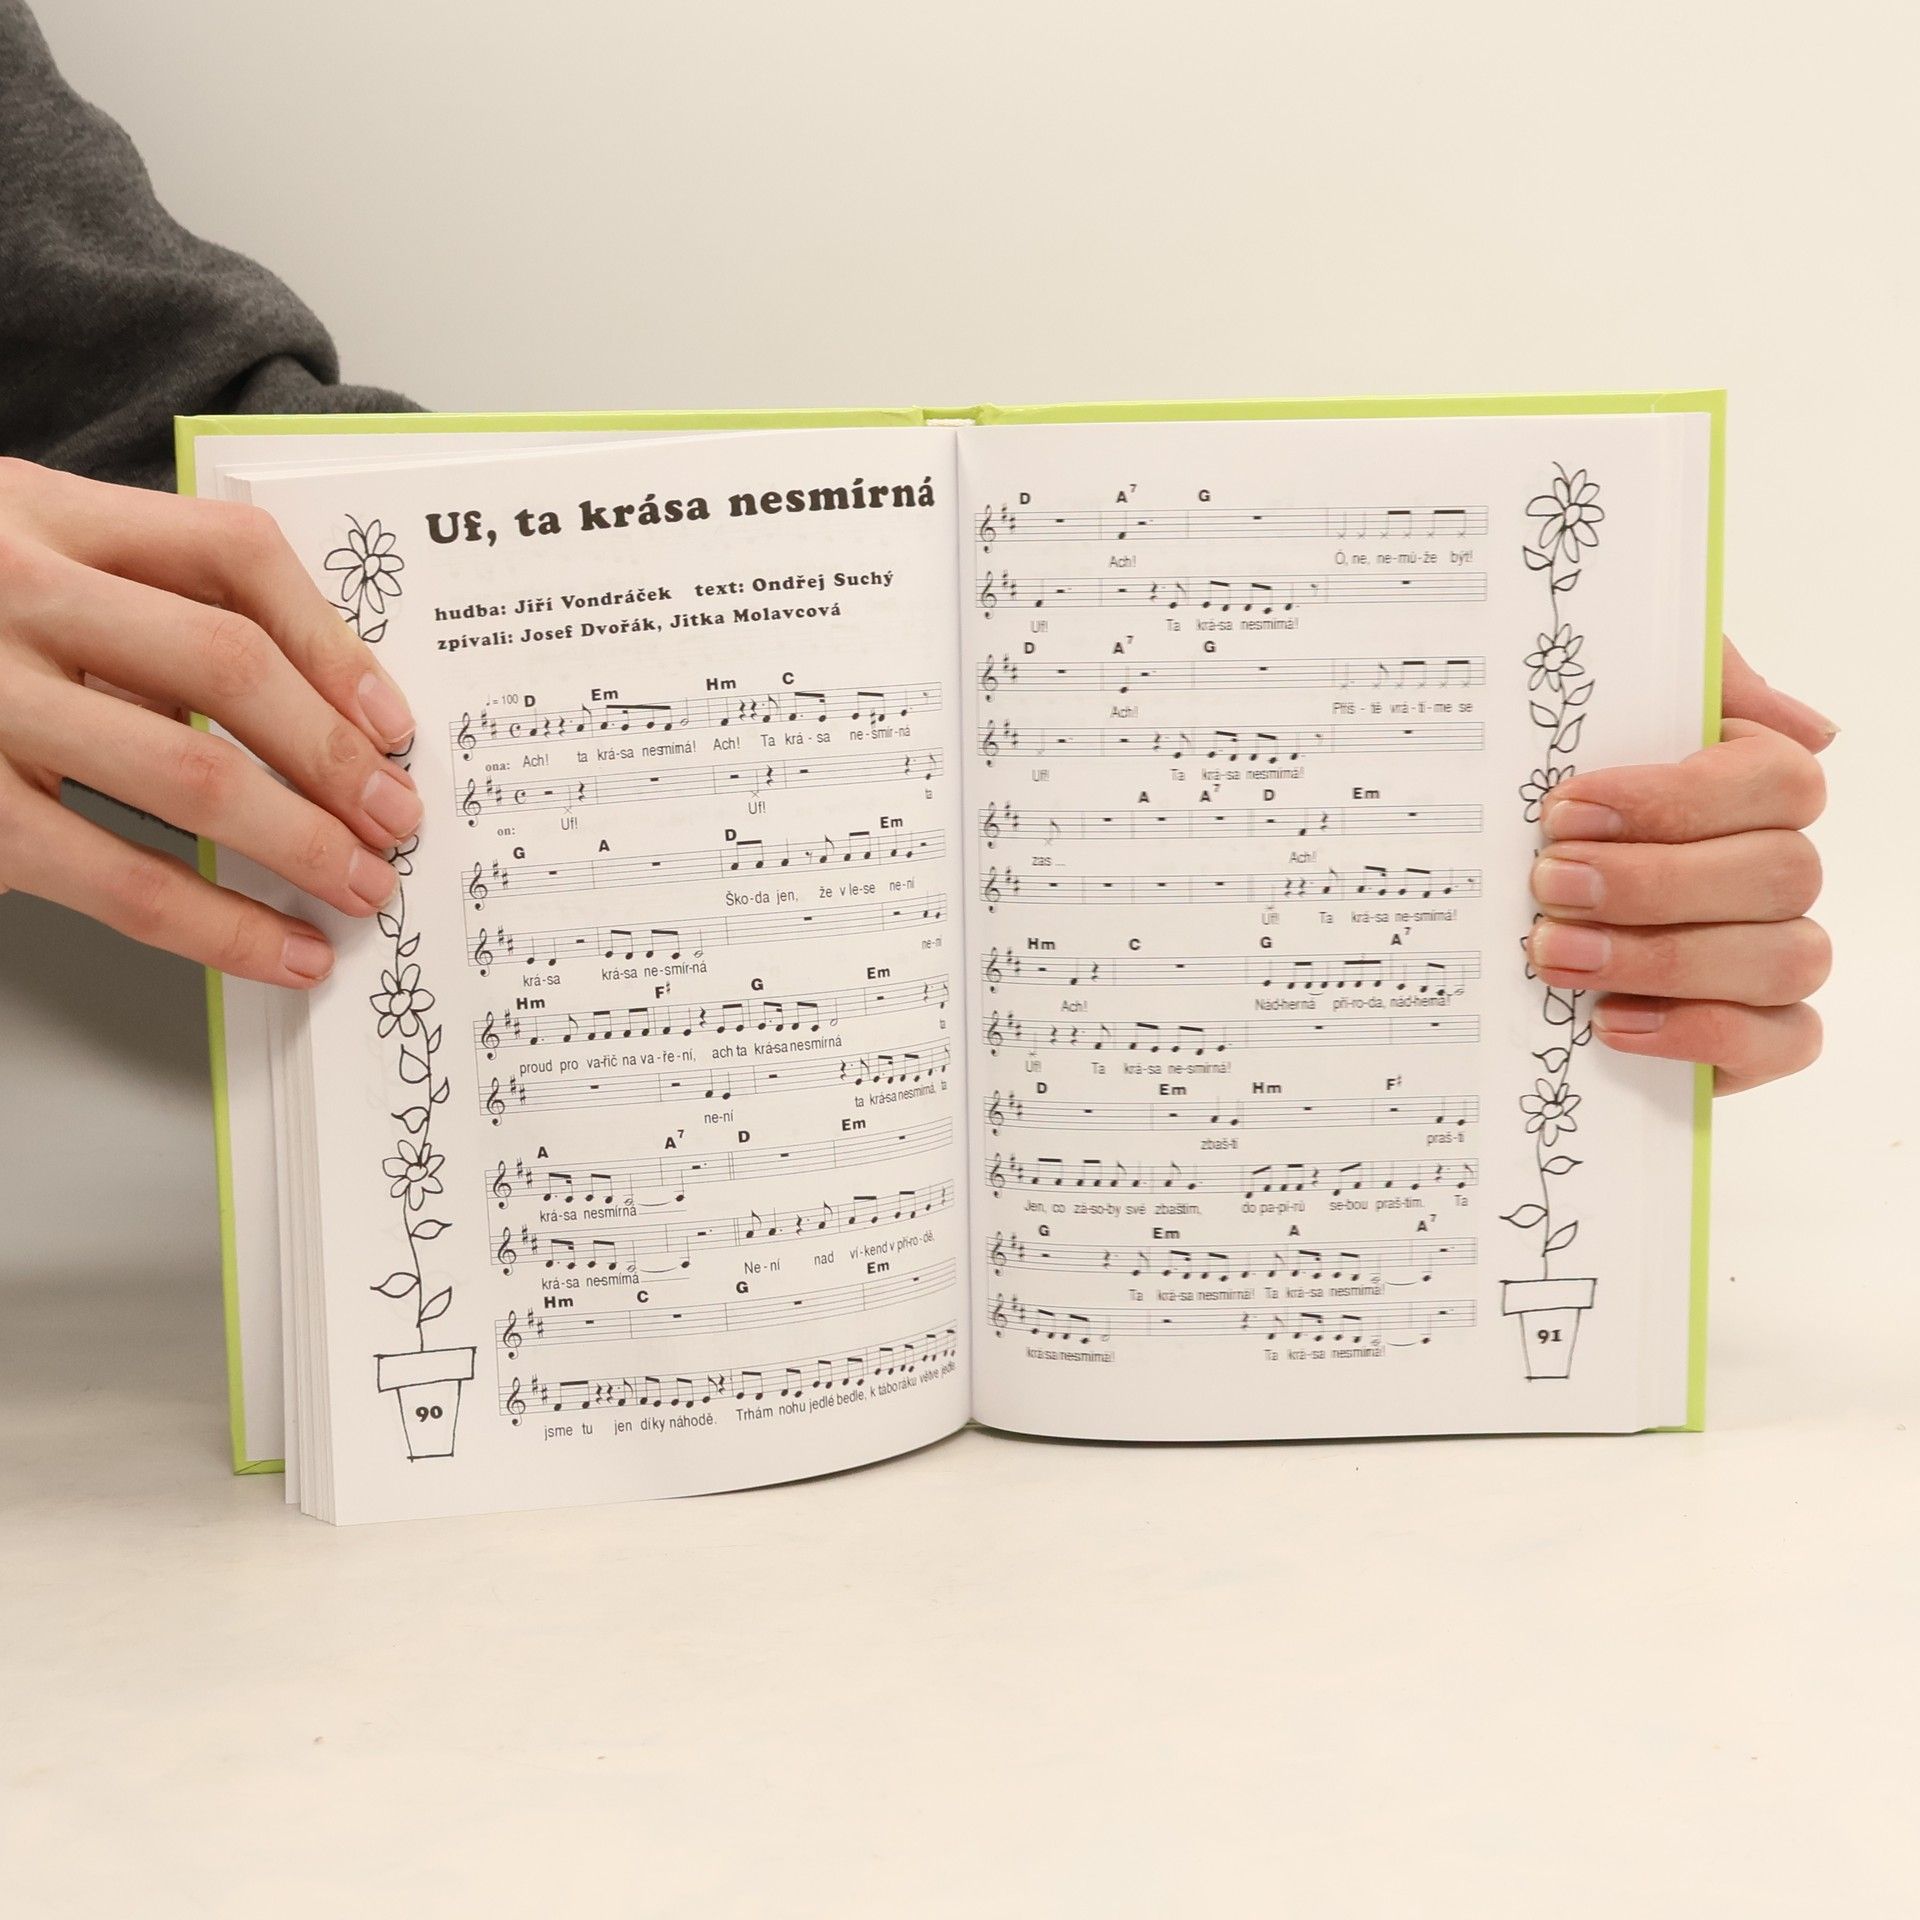 Uf, ta krása nesmírná
hudba: Jiří Vondráček text: Ondřej Suchý
zpívali: Josef Dvořák, Jitka Molavcová
♩ = 100 D Em Hm C
ona: Ach! ta krá-sa nesmírná! Ach! Ta krá - sa ne-smír-ná
on: Uf! Uf! ta
G A D Em
Ško-da jen, že v le-se ne-ní
krá-sa krá-sa ne-smír-ná ne-ní
Hm F♯ G Em
proud pro va-řič na va-ře-ní, ach ta krá-sa nesmírná ta
ne-ní ta krá-sa nesmírná, ta
A A7 D Em
krá-sa nesmírná
krá-sa nesmírná Ne-ní nad ví-kend v pří-ro-dě,
Hm C G Em
jsme tu jen díky náhodě. Trhám nohu jedlé bedle, k táboráku větve jedle
90
D A7 G
Ach! Ó, ne, ne-mů-že být!
Uf! Ta krá-sa nesmírná!
D A7 G
Ach! Příš - tě vrá-tí-me se
Uf! Ta krá-sa nesmírná!
A A7 D Em
zas ... Ach!
Uf! Ta krá-sa ne-smírná!
Hm C G A7
Ach! Nád-herná pří-ro-da, nád-herná!
Uf! Ta krá-sa ne-smírná!
D Em Hm F♯
zbaš-tí praš-tí
Jen, co zá-so-by své zbaštím, do pa-pí-rů se-bou praš-tím. Ta
G Em A A7
Ta krá-sa nesmírná! Ta krá-sa nesmírná!
krá-sa nesmírná! Ta krá-sa nesmírná!
91